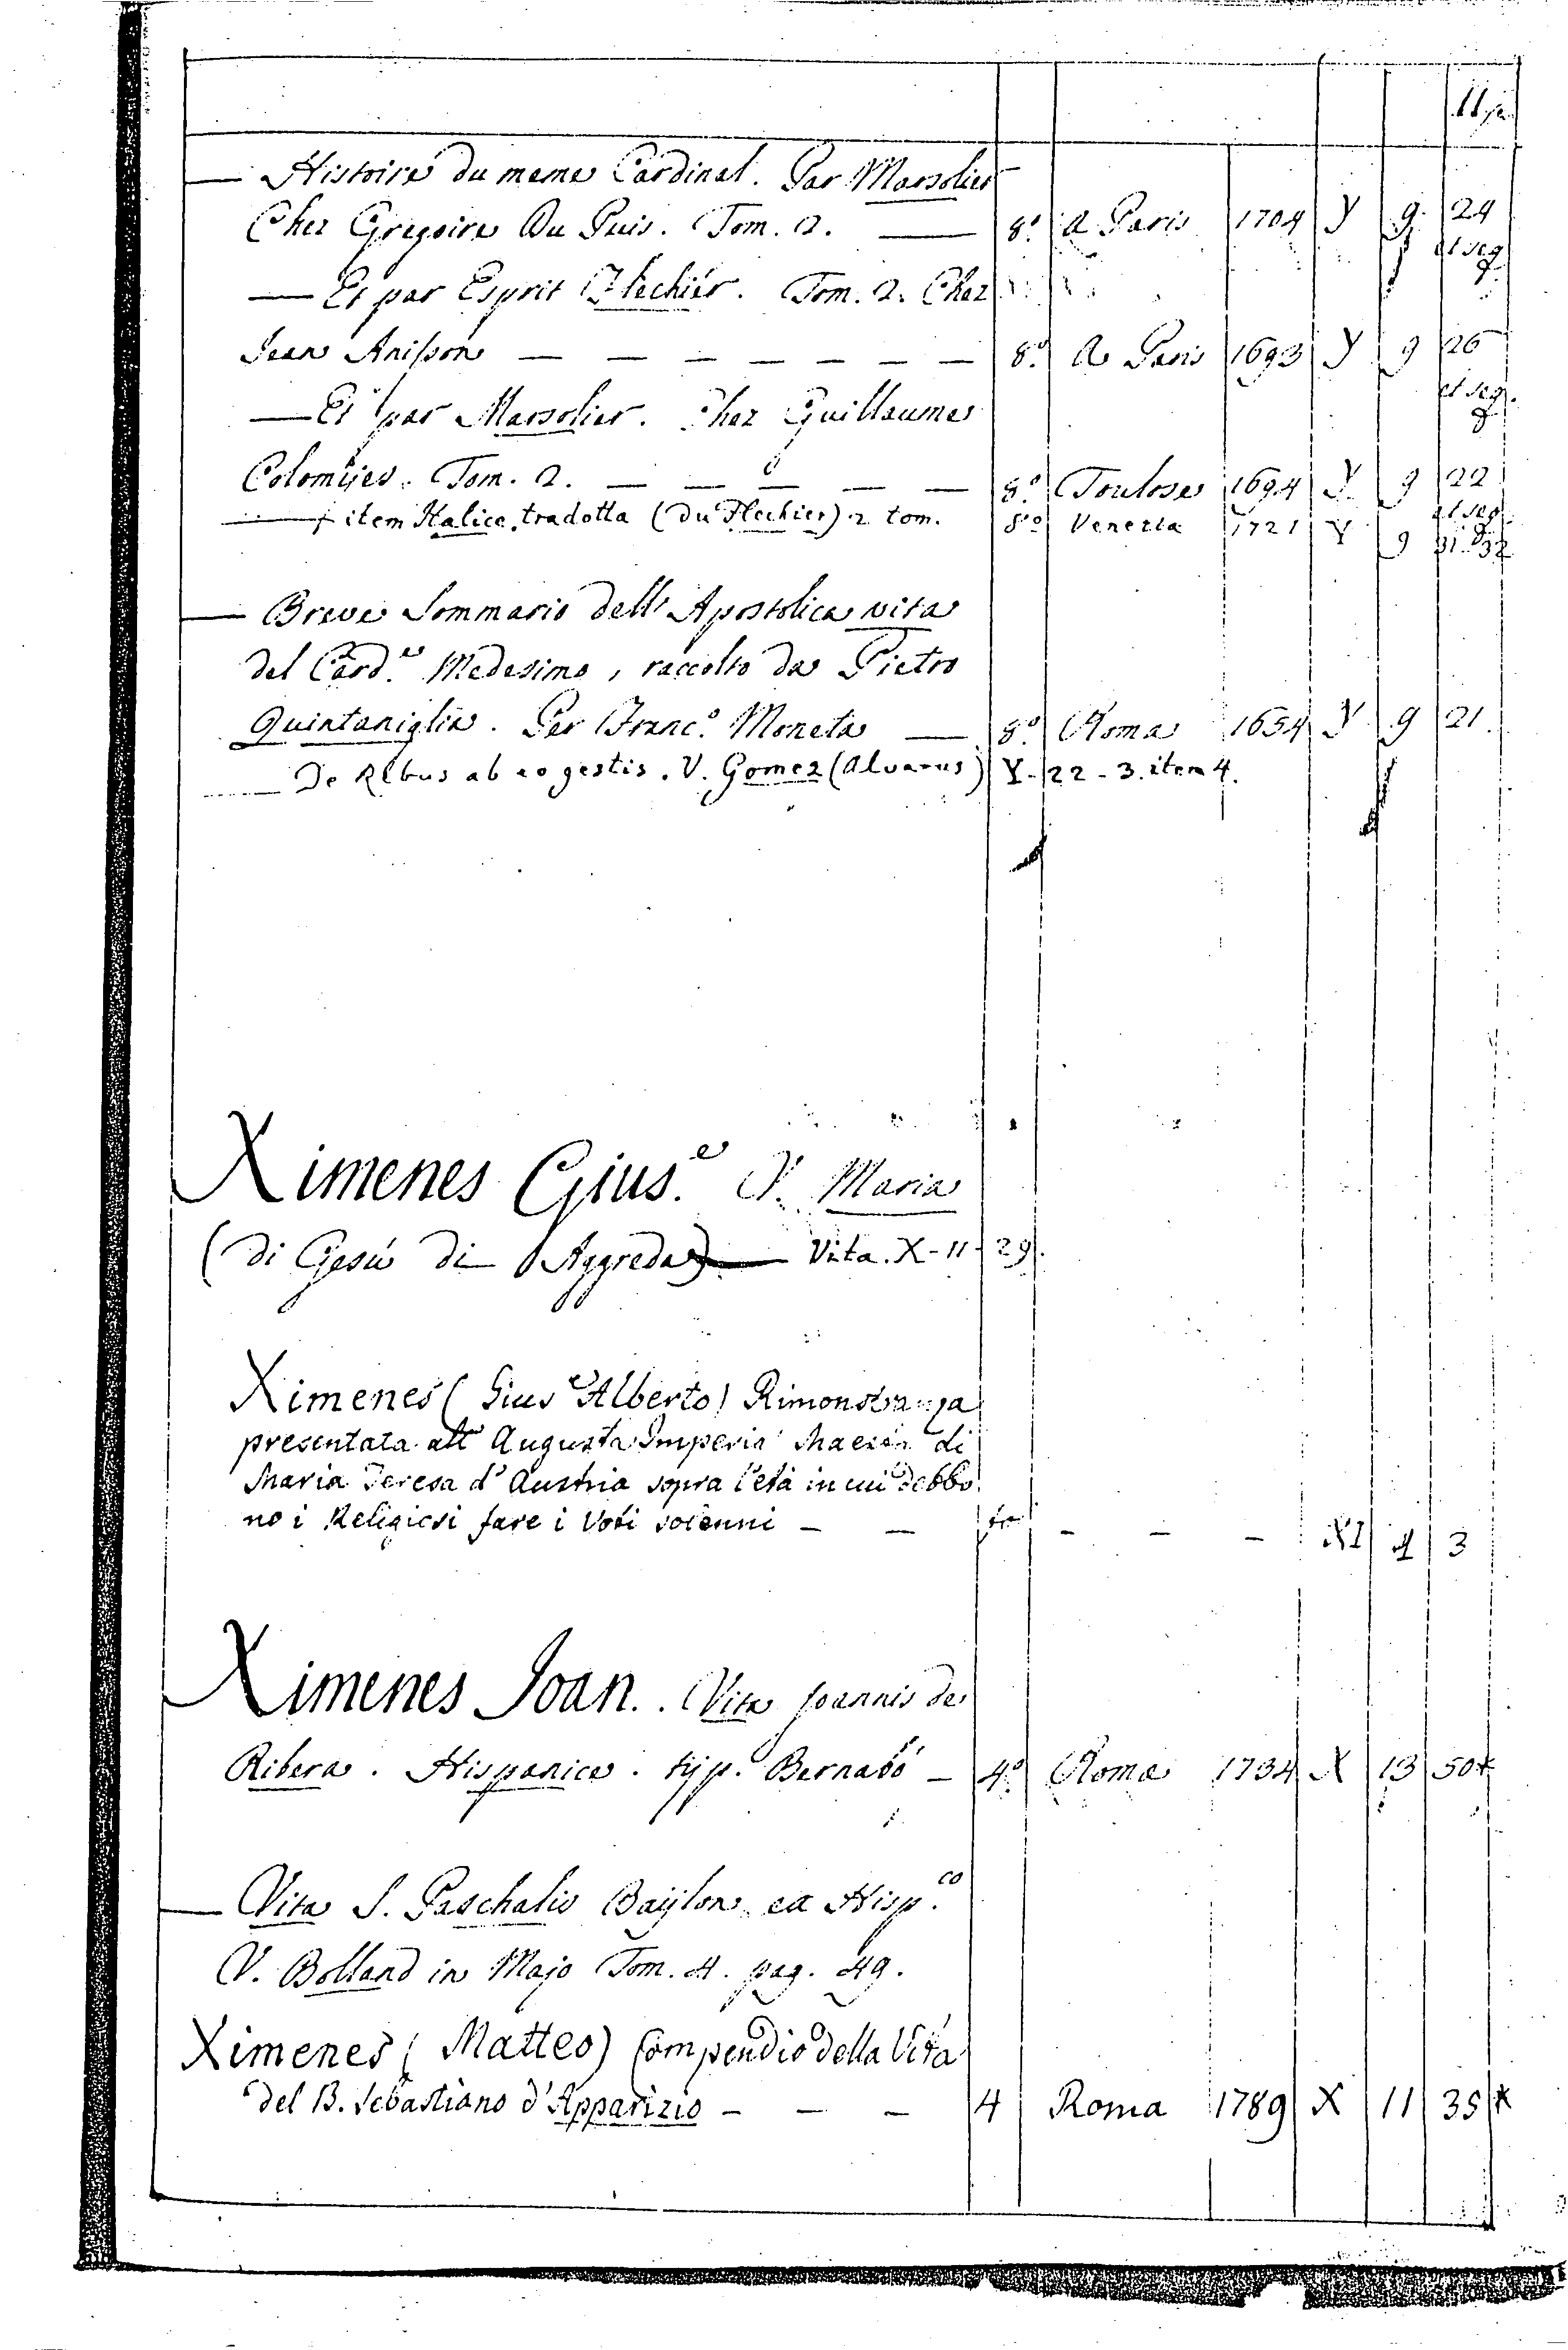 — Histoire du meme Cardinal. Par Marsolier
Chez Gregoire Du Puis. Tom. 2. — 8.º A Paris 1704 Y 9. 24 et seq.
— Et par Esprit Flechiér. Tom. 2. Chez
Jean Anisson — — — — — — 8.º A Paris 1693 Y 9 26 et seq.
— Et par Marsolier. Chez Guillaume
Colomijes. Tom. 2. — — — — — 8.º Toulose 1694 Y 9 22 et seq.
— item Italice tradotta (du Flechier) 2 tom. 8º Venezia 1721 Y 9 31. 32
— Breve Sommario dell' Apostolica vita
del Card.e Medesimo, raccolto da Pietro
Quintaniglia. Per Franc.º Moneta — 8.º Roma 1654 Y 9 21.
— De Rebus ab eo gestis. V. Gomez (Alvarus) Y-22-3. item 4.
Ximenes Gius.e V. Maria
(di Gesù di Aggreda) — Vita. X-11-29.
Ximenes (Gius.e Alberto) Rimonstranza
presentata all' Augusta Imperia' Maestà di
Maria Teresa d' Austria sopra l'età in cui debbo
no i Religiosi fare i Voti solenni — — — — — XI 4 3
Ximenes Joan.. Vita Joannis de
Ribera. Hispanice. typ. Bernabò — 4.º Roma 1734 X 13 50*
— Vita S. Paschalis Baijlon ex Hisp.co
V. Bolland in Majo Tom. 4. pag. 49.
Ximenes (Matteo) Compendio della Vita
del B. Sebastiano d'Apparizio — — — 4 Roma 1789 X 11 35 *